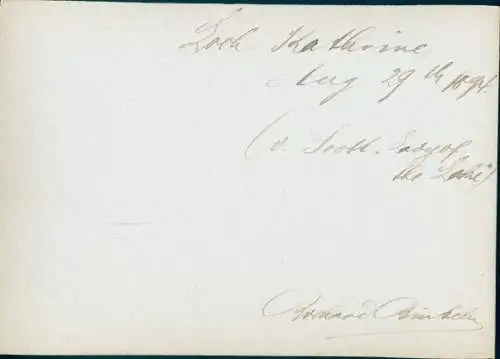 Loch Kathrine
Aug 29th 1894.
(v. Scott. Lady of
the Lake)